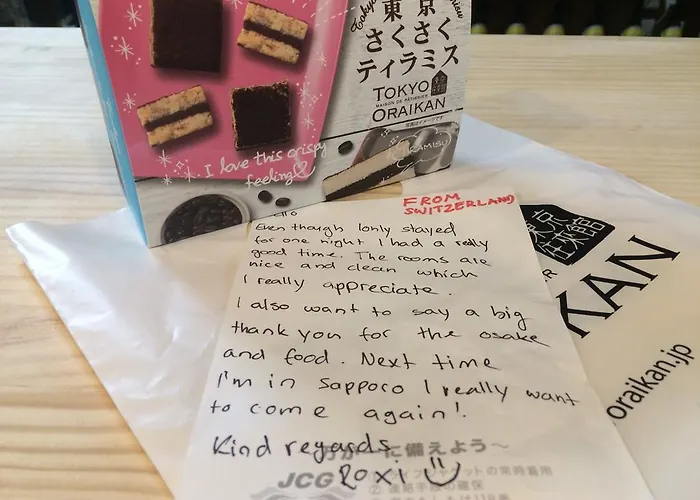 東京
さくさく
ティラミス
TOKYO
MAISON DE PÂTISSERIE
ORAIKAN
I love this crispy
feeling♡
FROM
SWITZERLAND
Even though I only stayed
for one night I had a really
good time. The rooms are
nice and clean which
I really appreciate.
I also want to say a big
thank you for the osake
and food. Next time
I'm in Sapporo I really want
to come again!
Kind regards
Roxi
に備えよう～
JCG
東京
往来館
KAN
oraikan.jp